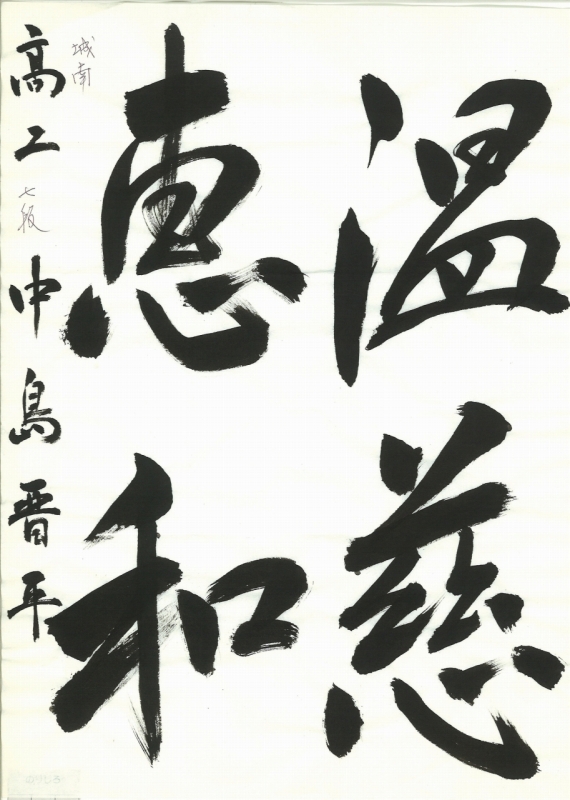 温慈
恵和
城南
高二 七級 中島晋平